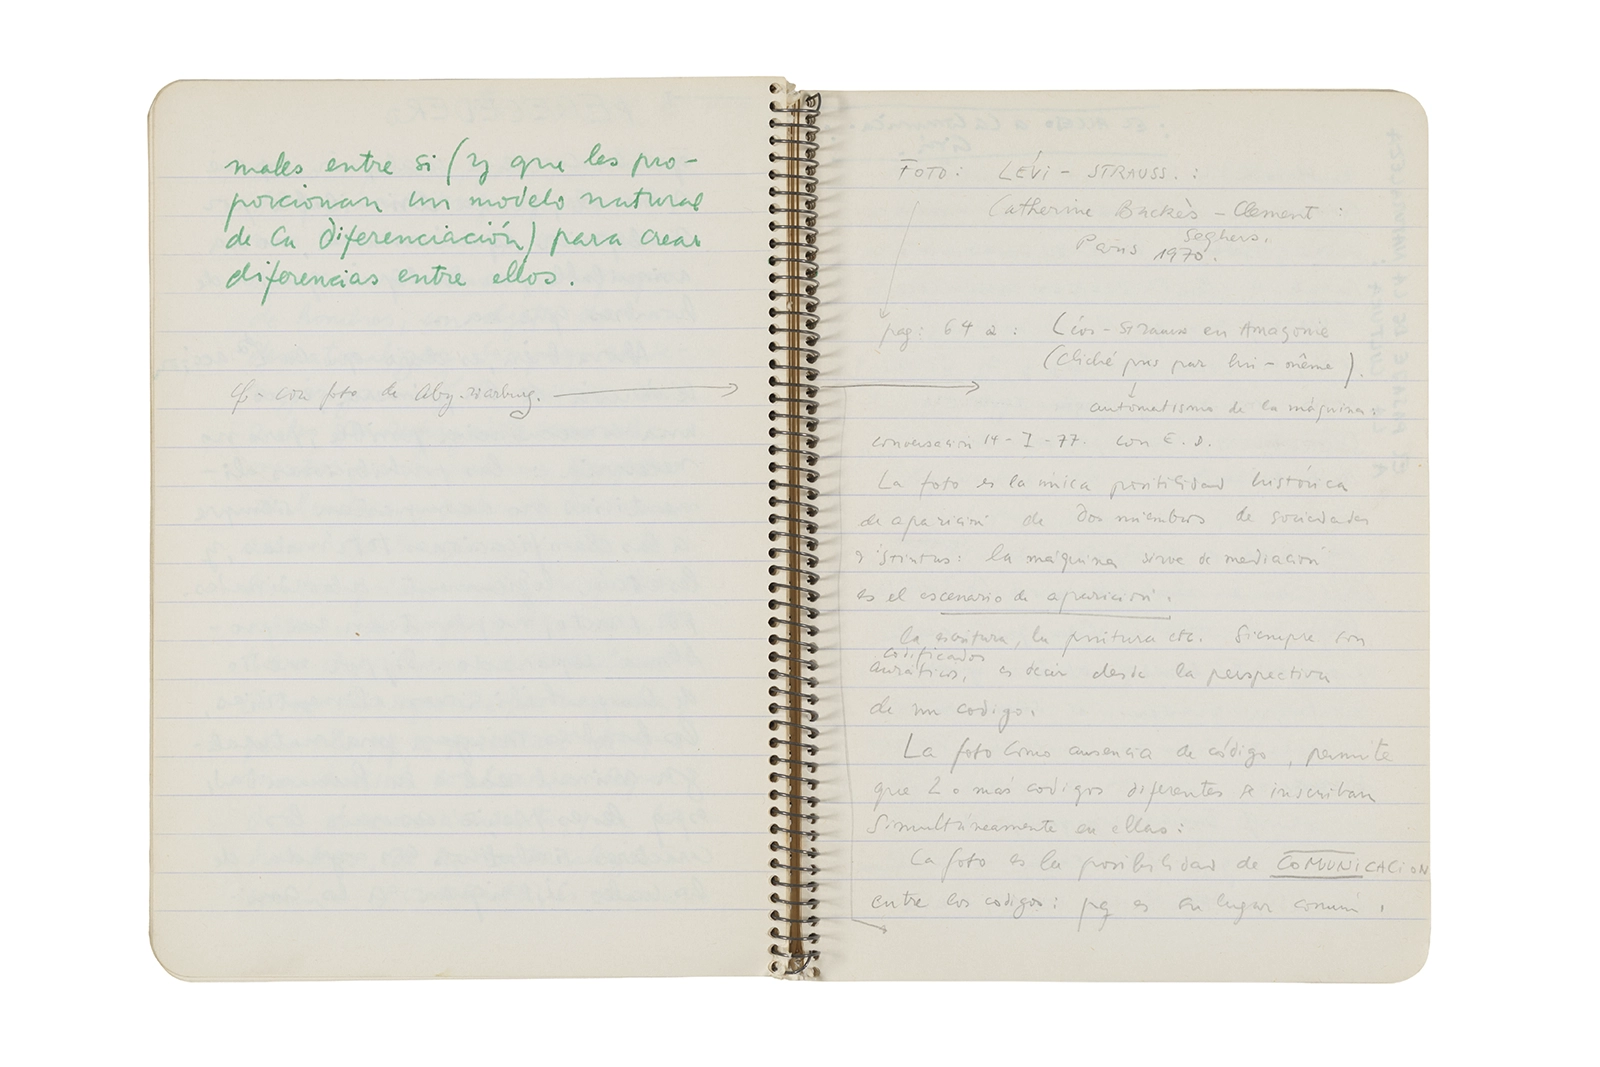 males entre si (y que les pro-
porcionan un modelo natural
de la diferenciación) para crear
diferencias entre ellos.
cf. con foto de Aby Warburg.
FOTO: LÉVI-STRAUSS.:
Catherine Backès-Clement:
Seghers.
Paris 1970.
pag: 64 a: Lévi-Strauss en Amazonie
(cliché pris par lui-même).
automatismo de la máquina:
conversación 14-I-77. con E. D.
La foto es la única posibilidad histórica
de aparición de dos miembros de sociedades
distintas: la máquina sirve de mediación
es el escenario de aparición.
la escritura, la pintura etc. siempre son
codificados
auráticos, es decir desde la perspectiva
de un codigo.
La foto como ausencia de código, permite
que 2 o más codigos diferentes se inscriban
simultáneamente en ellas:
La foto es la posibilidad de COMUNICACION
entre los codigos: pq es su lugar común.